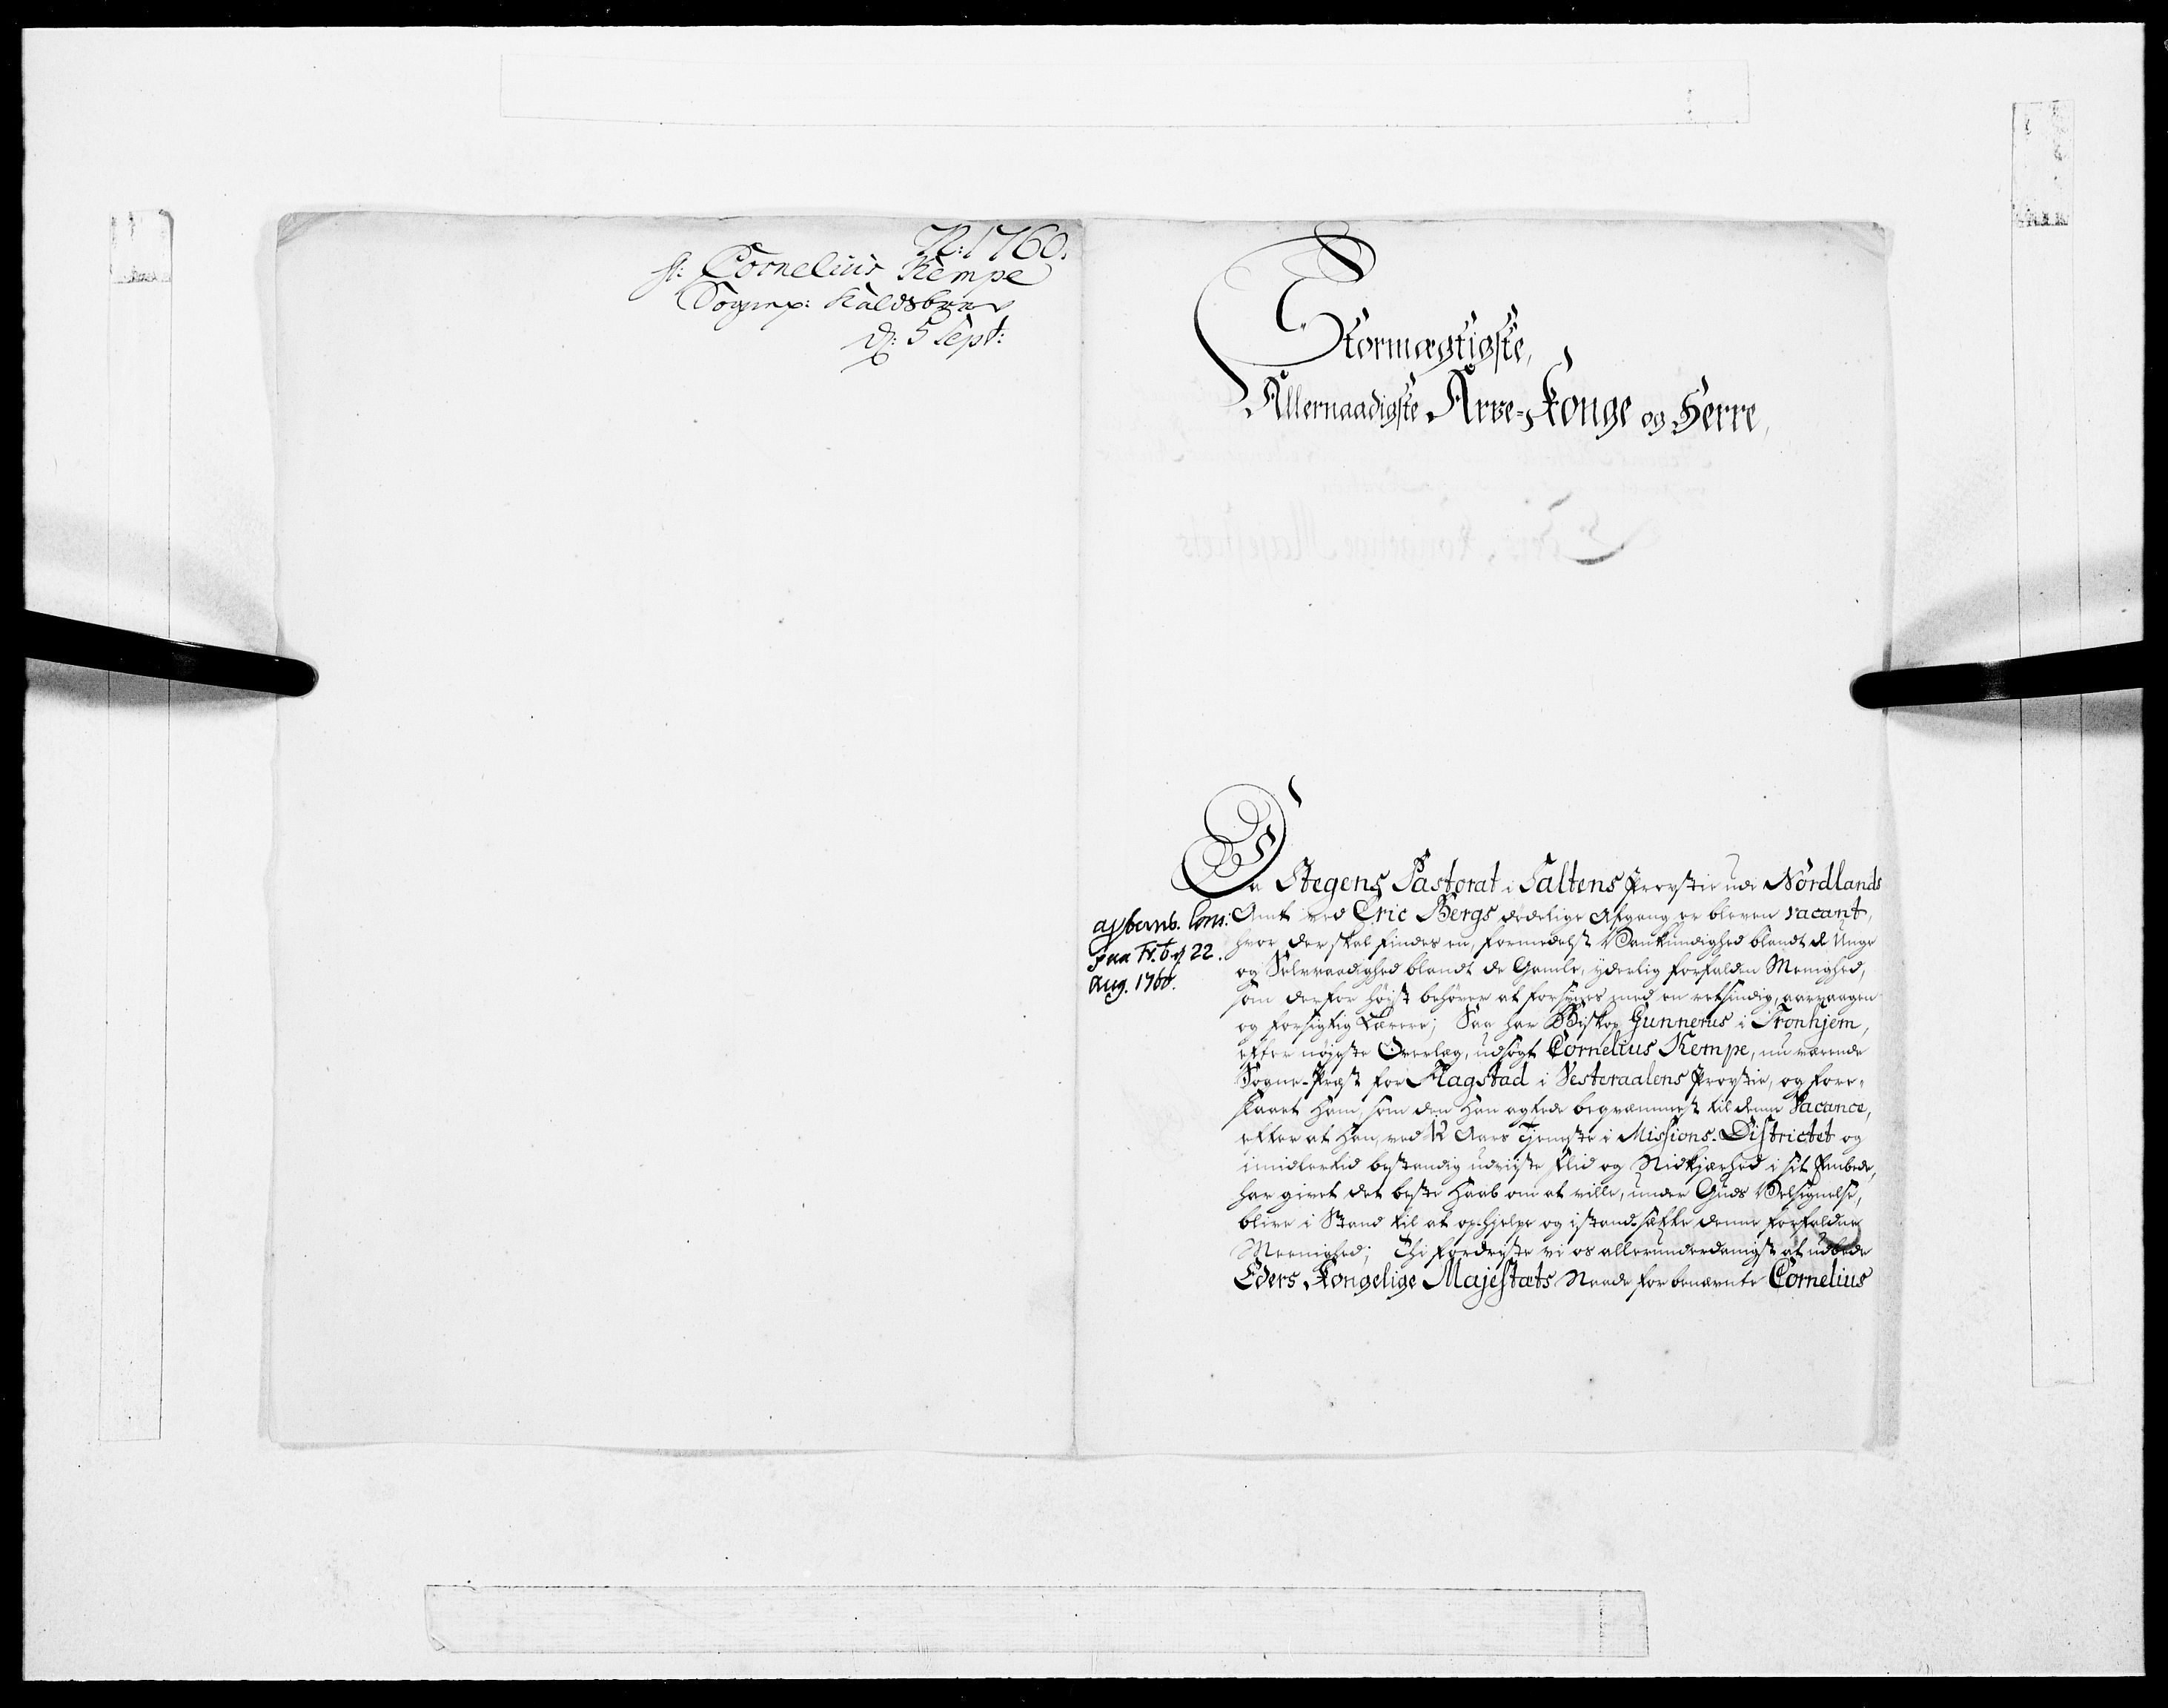 N: 1760.
Cornelius Kempe
Sognepr: Kaldsbrev
d: 5 Sept:
Stormægtigste,
Allernaadigste Arve-Konge og Herre,
Da Stegens Pastorat i Saltens Provstie udi Nordlands
Amt ved Eric Bergs dødelige Afgang er bleven vacant,
hvor der skal findes en, formedelst Vankundighed blandt de Unge
og Selvraadighed blandt de Gamle, yderlig forfalden Menighed,
som derfor høist behøver at forsynes med en retsindig, aarvaagen
og forsigtig Lærere; Saa har Biskop Gunnerus i Tronhjem,
efter nøyeste Overlæg, udsøgt Cornelius Kempe, nu værende
Sogne-Præst for Flagstad i Vesteraalens Provstie, og fore-
slaaet Ham, som den Han agtede beqvæmmest til denne Vacance,
efter at Han, ved 12 Aars Tjeneste i Missions-Districtet og
imidlertid bestandig udviiste Flid og Nidkjærhed i sit Embede,
har givet det beste Haab om at ville, under Guds Velsignelse,
blive i Stand til at op-hjelpe og istand-sætte denne forfaldne
Meenighed; Thi fordriste vi os allerunderdanigst at udbede
Eders Kongelige Majestæts Naade for benævnte Cornelius
paa Fr.b. d 22.
Aug. 1760.